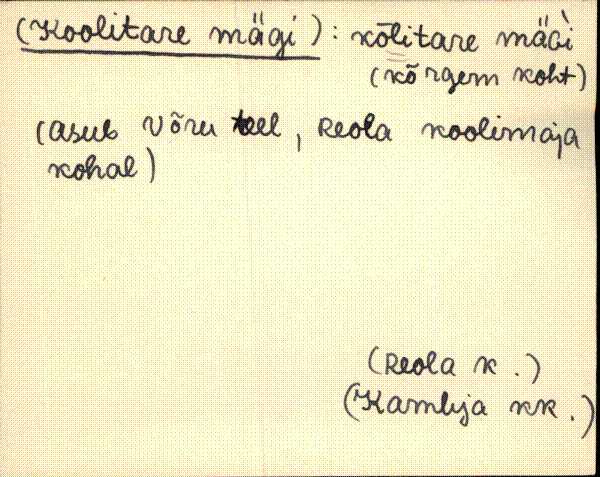 (Koolitare mägi) : kõlitare mäGi
(kõrgem koht)
(asub Võru teel, Reola koolimaja
kohal)
(Reola k.)
(Kambja kk.)